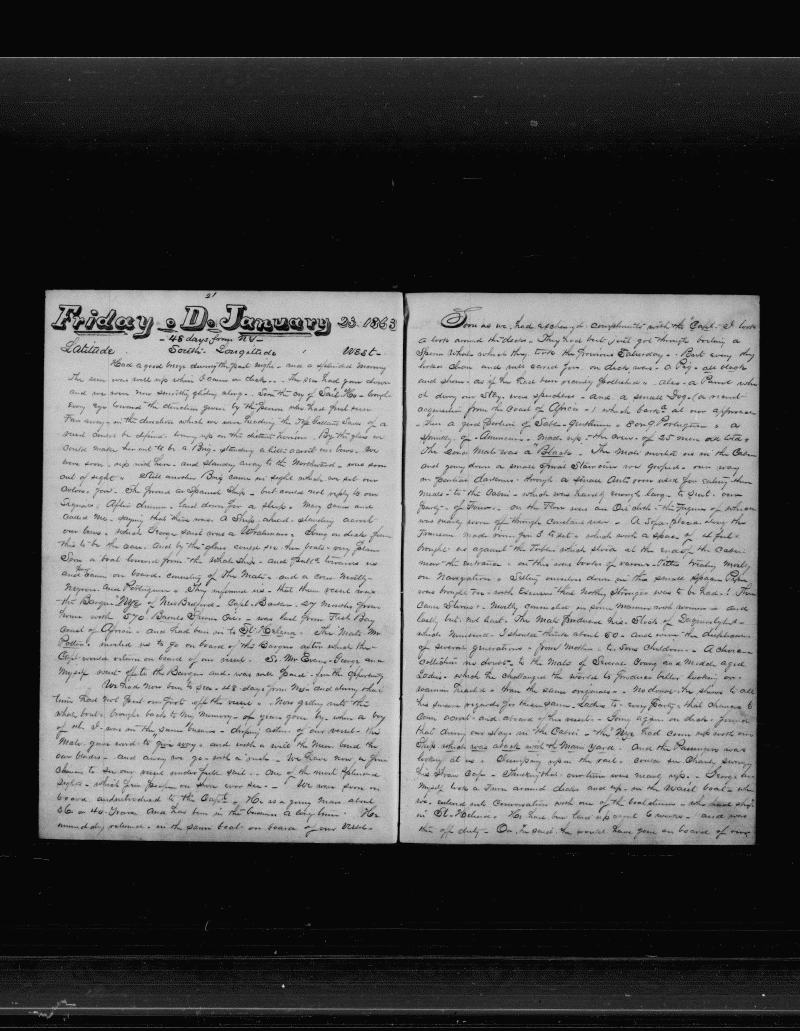 21
Friday . D. January 23. 1863
- 48 days from NY -
Latitude South. Longitude West-
Had a good breeze during the past night - and a splendid morning
The sea was well up when I came on deck. - The sea had gone down
and we were now smoothly gliding along. Soon the cry of Sail Ho - brought
every eye toward the direction given by the person who had first seen
Far away - in the direction which we were heading the Top Gallant Sails of a
vessel could be defined. looming up on the distant horizon. By the glass we
could make her out to be a Brig - standing a little across our bows. We
were soon up with her. and standing away to the Northward. was soon
out of sight. Still another Brig came in sight which we set our
colors for. She proved a Spanish Ship - but could not reply to our
Signals. After dinner. laid down for a sleep. Mary came and
called me. saying that there was a Ship ahead. standing across
our bows. which George said was a Whaleman. Going on deck found
this to be the case. And by the glass could see her boats very plain
Soon a boat lowered from the Whale Ship - and pulled towards us
and soon came on board. consisting of The Mate - and a crew mostly
Negroes and Portuguese. They informed us - that their vessel was
the Barque Nye of New Bedford. Capt. Baker. 27 months from
home with 570 Barrels Sperm Oil - was last from Fish Bay
coast of Africa - and had been in to St Helena. The Mate Mr
Potter. invited us to go on board of the Barque after which the
Capt would return on board of our vessel. So Mr Evans. George and
Myself went off to the Barque and was well paid for the opportunity
We had now been to sea - 48 days from NY - and during that
time had not put our foot off the vessel. Now getting into this
whale boat - brought back to my memory - of years gone by. when a boy
of 14. I was in the same business - chasing astern of our vessel. the
Mate gave word to give way. and with a will the Men bend the
oar blades - and away we go. with a rush. We have now a fine
chance to see our vessel under full sail. - One of the most splendid
sights - which few people on shore ever see. - We were soon on
board and introduced to the Capt. of N. He is a young man about
36 or 40. Years. And has been in the business a long time. He
immediately returned. in the same boat on board of our vessel.
Soon as we had exchanged compliments with the Capt. I took
a look around the decks. They had but just got through boiling a
Sperm Whale which they took the previous Saturday. But every thing
looked clean and well cared for. on deck was a Pig. all black
and shone. as if he had been recently polished. also a Parrot who
during our stay was speechless - and a small Dog. (a recent
acquisition from the Coast of Africa -) which barked at our approach
- Then a good portion of Sable Gentlemen - Some Portuguese - a
sprinkling of Americans. made up the crew of 25 men all told.
The second Mate was a Black. The Mate invited us in the Cabin
and going down a small spiral Staircase we groped our way
in partial darkness - through a small Ante room used for eating their
meals - to the Cabin - which was hardly enough large to seat our
party - of Four. on the Floor was an Oil cloth - the Figure of which
was nearly worn off through constant wear. A Sofa placed along the
Transom made room for 3 to set - which with a space of 4 feet
brought us against the Table which stood at the end of the Cabin
near the entrance. on this was books of various Titles Treating mostly
on Navigation. Setting ourselves down in this small space Port
was brought on - with excuses that nothing stronger was to be had. Then
came Stories - mostly connected in some manner with women and
last but not least. The Mate produced his Stock of Daguerreotypes
which numbered - I should think about 50 - and were the likenesses
of several generations - from Mother - to Sons children. - A choice
collection no doubt. to the Mate of Several Young and middle aged
Ladies. which he challenged the world to produce better looking or
women - than the same originals. No doubt he shows to all
his sincere regards for these same Ladies to every Party that chances to
come across and aboard of his vessel. Going again on deck. found
that during our stay in the Cabin - the Nye had come up with our
Ship which was aback with the Main Yard. And the Passengers was
looking at us. Clumping up on the rail. could see Charley
his Straw Cap. Thinking that our time was nearly up. George and
Myself took a Turn around decks and up. in the waist boat when
we entered into Conversation with one of the boatsteerers who had shipped
in St. Helena. He had been laid up about 6 weeks and was
then off duty. Oh. he said he would have gone on board of our